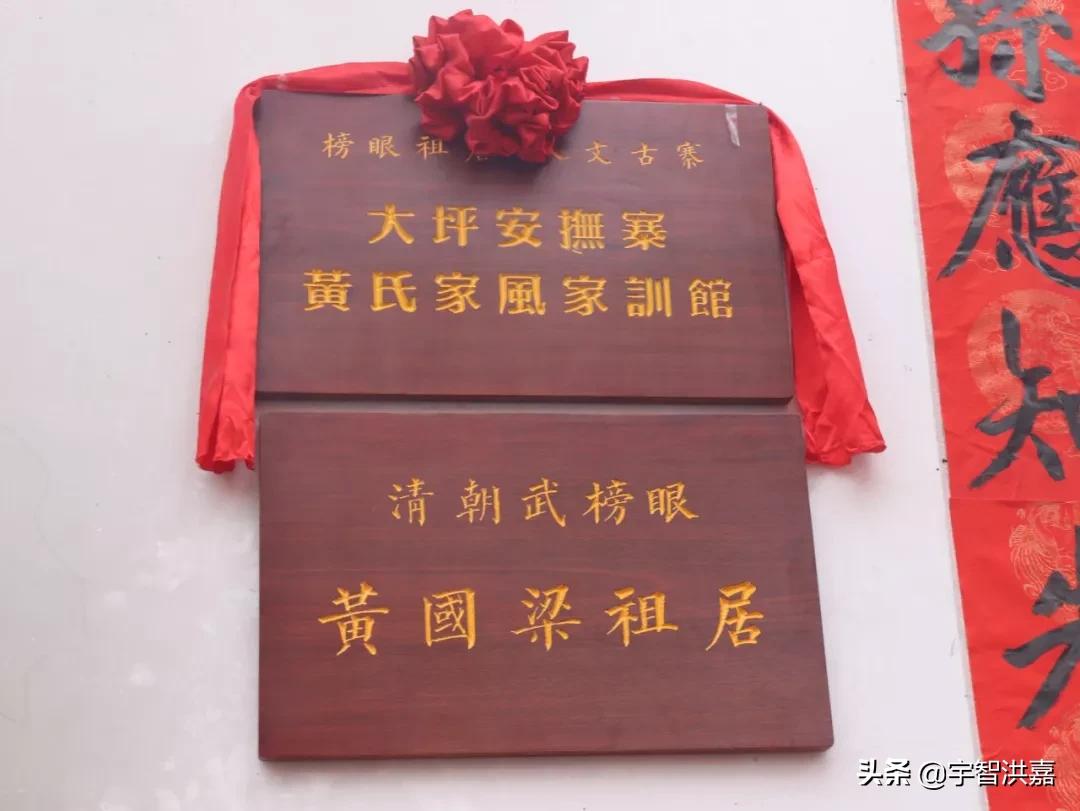 榜眼祖居 人文古寨
大坪安撫寨
黃氏家風家訓館
清朝武榜眼
黃國梁祖居
孫應知先
头条 @宇智洪嘉